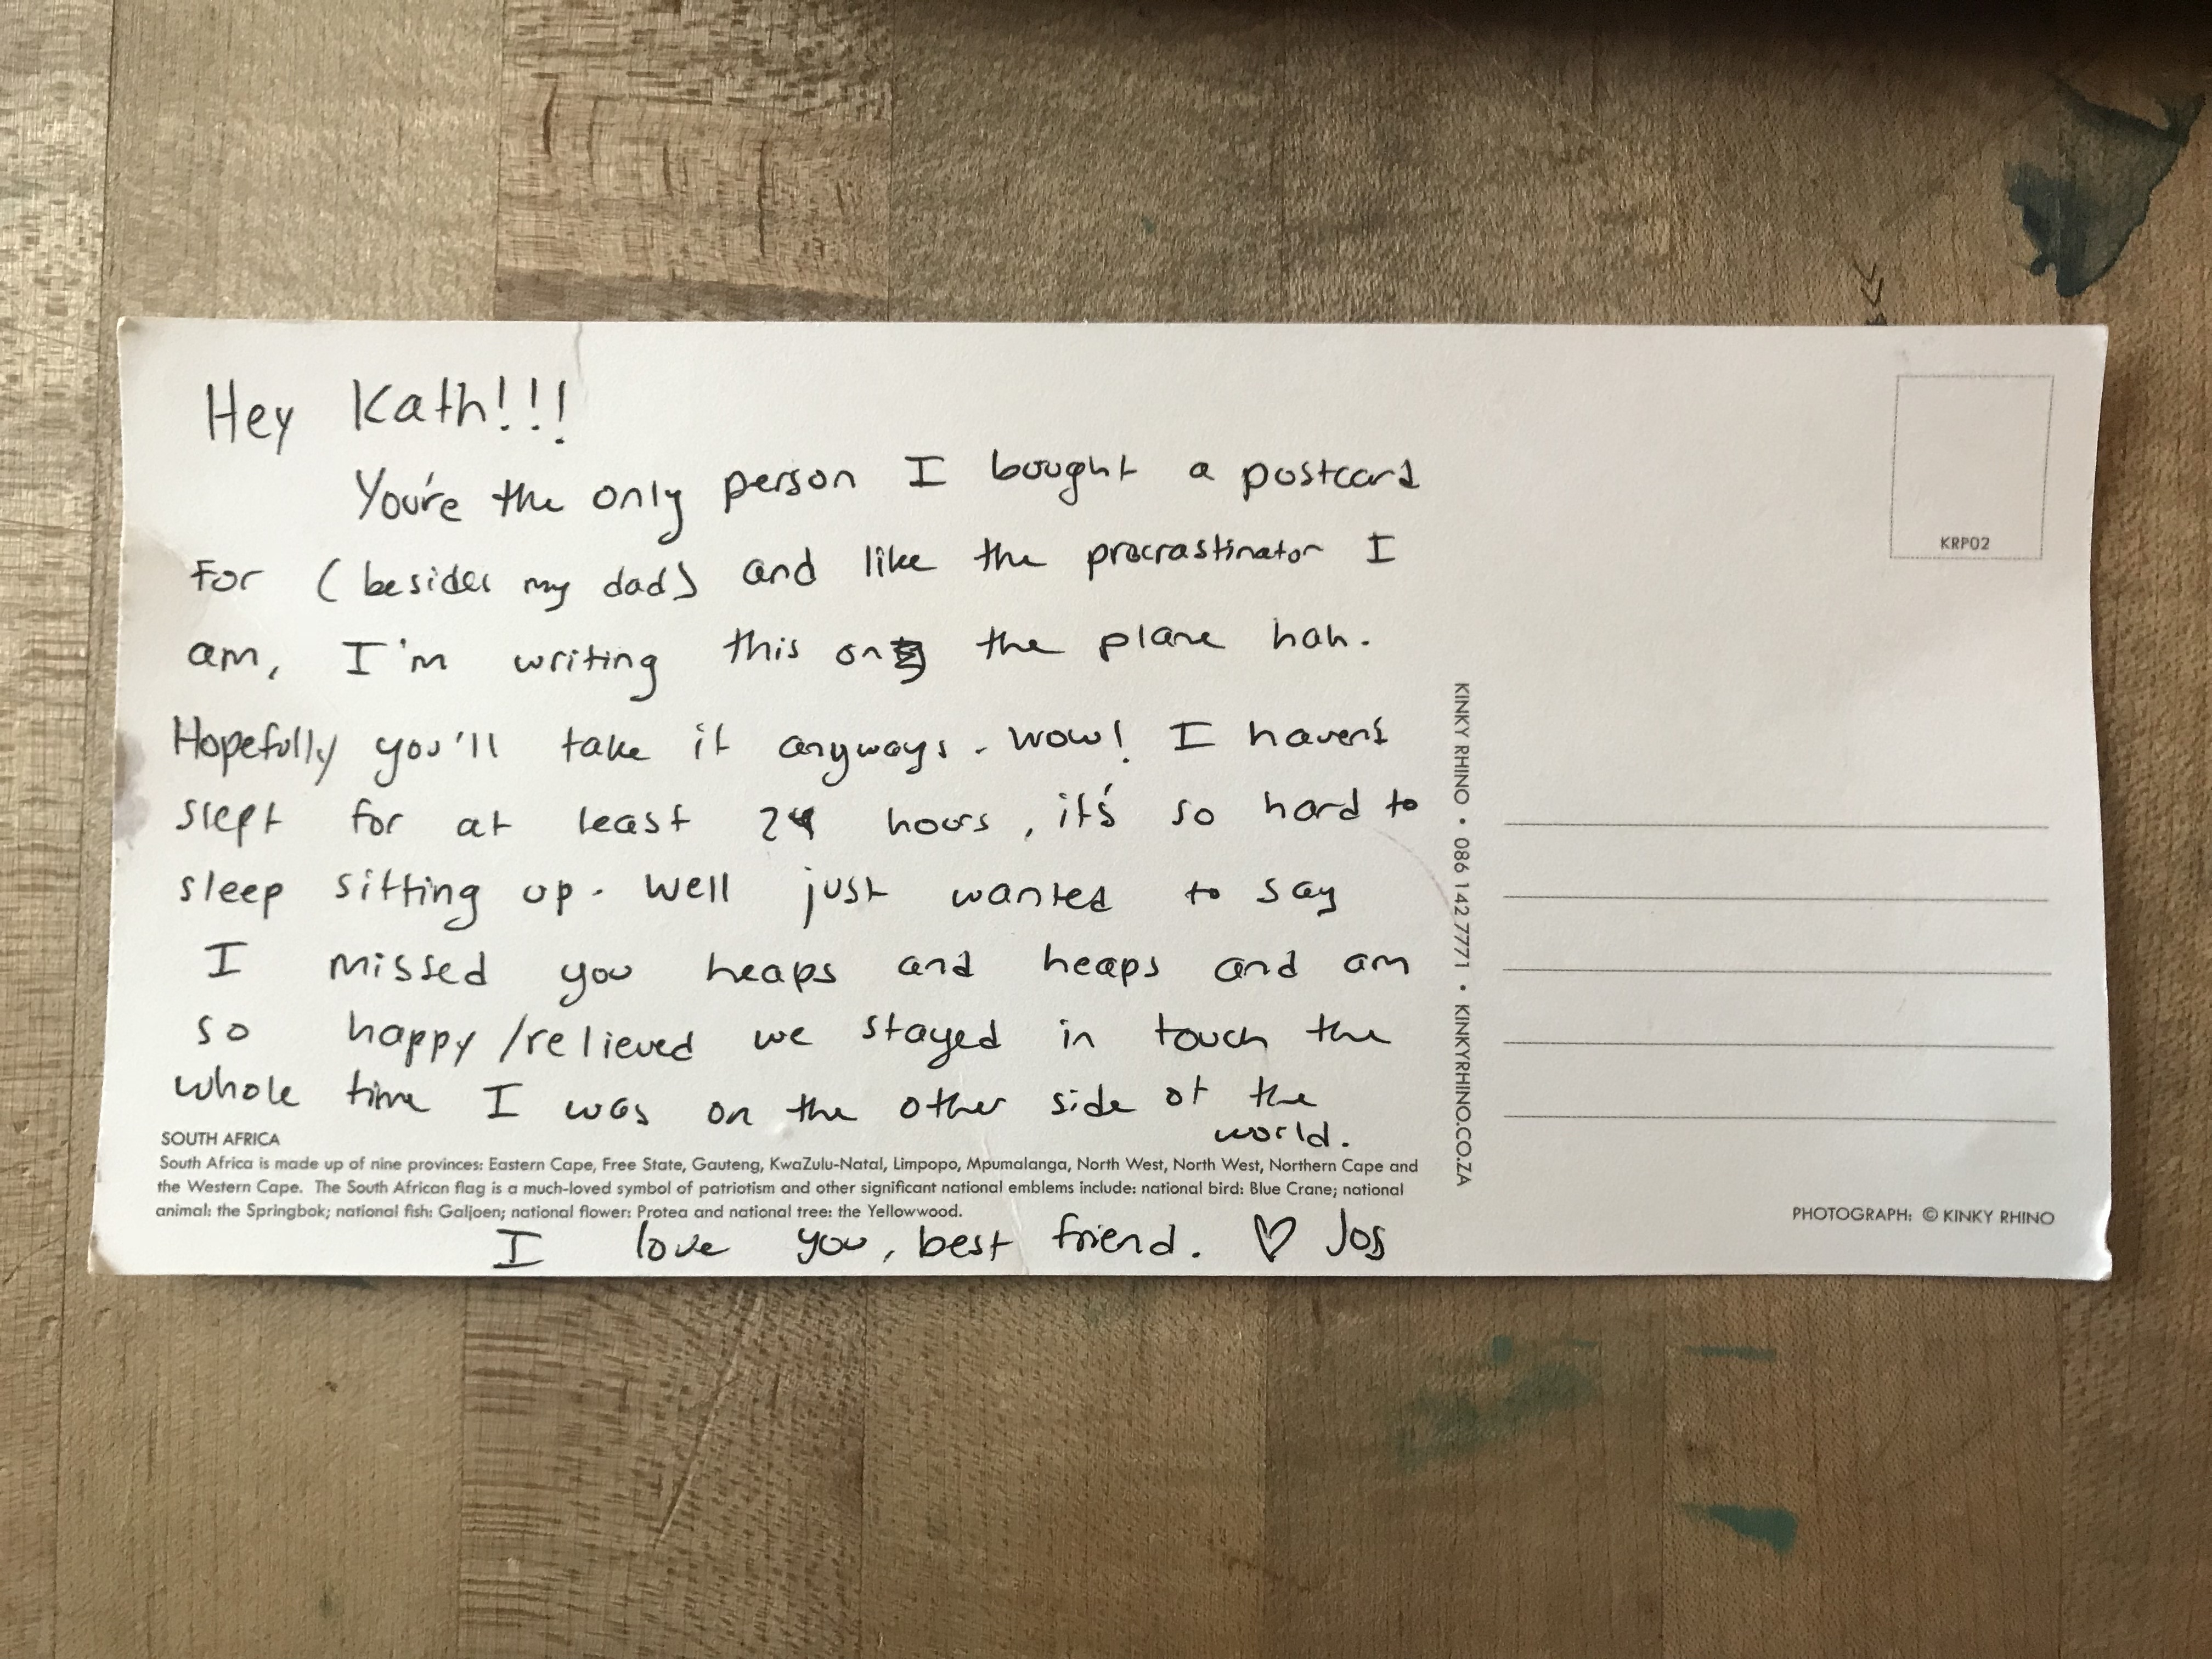 Hey Kath!!!
You're the only person I bought a postcard
for (besides my dad) and like the procrastinator I
am, I'm writing this on the plane hah.
Hopefully you'll take it anyways. Wow! I haven't
slept for at least 24 hours, it's so hard to
sleep sitting up. Well just wanted to say
I missed you heaps and heaps and am
so happy/relieved we stayed in touch the
whole time I was on the other side of the
world.
SOUTH AFRICA
South Africa is made up of nine provinces: Eastern Cape, Free State, Gauteng, KwaZulu-Natal, Limpopo, Mpumalanga, North West, North West, Northern Cape and
the Western Cape. The South African flag is a much-loved symbol of patriotism and other significant national emblems include: national bird: Blue Crane; national
animal: the Springbok; national fish: Galjoen; national flower: Protea and national tree: the Yellowwood.
I love you, best friend. ♡ Jos
KINKY RHINO • 086 142 7771 • KINKYRHINO.CO.ZA
KRP02
PHOTOGRAPH: © KINKY RHINO